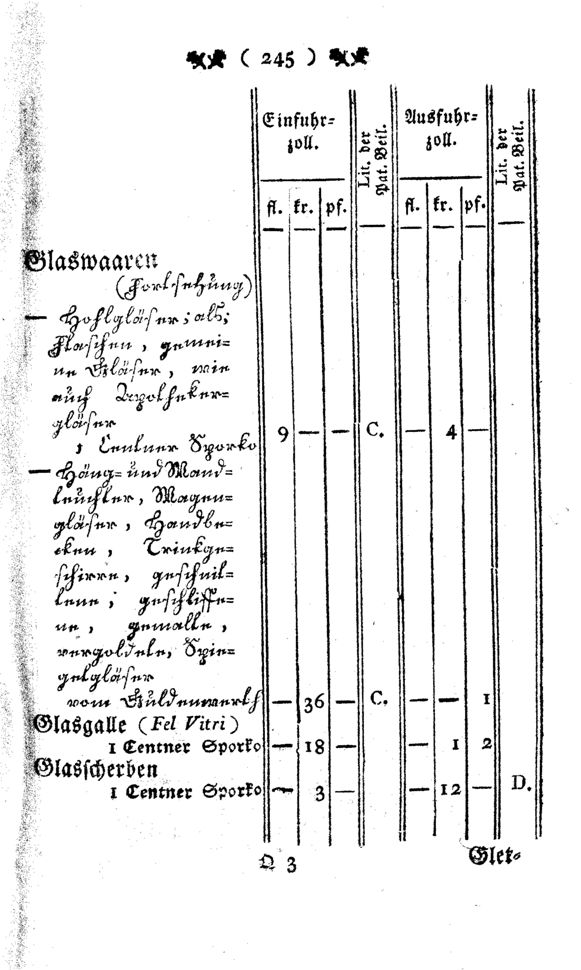 ( 245 )
Einfuhr= zoll. Lit. der Pat. Beil. Ausfuhr= zoll. Lit. der Pat. Beil.
fl. kr. pf. fl. kr. pf.
Glaswaaren
(Fortsetzung)
— Hohlgläser; als;
Flaschen, gemei=
ne Gläser, wie
auch Apotheker=
gläser
1 Centner Sporko 9 — — C. — 4 —
— Häng= und Wand=
leuchter, Wagen=
gläser, Handbe=
cken, Trinkge=
schirre, geschnit=
tene, geschliffe=
ne, gemalte,
vergoldete, Spie=
gelgläser
vom Guldenwerth — 36 — C. — — 1
Glasgalle (Fel Vitri)
1 Centner Sporko — 18 — — 1 2
Glasscherben
1 Centner Sporko — 3 — — 12 — D.
Q 3 Glet=